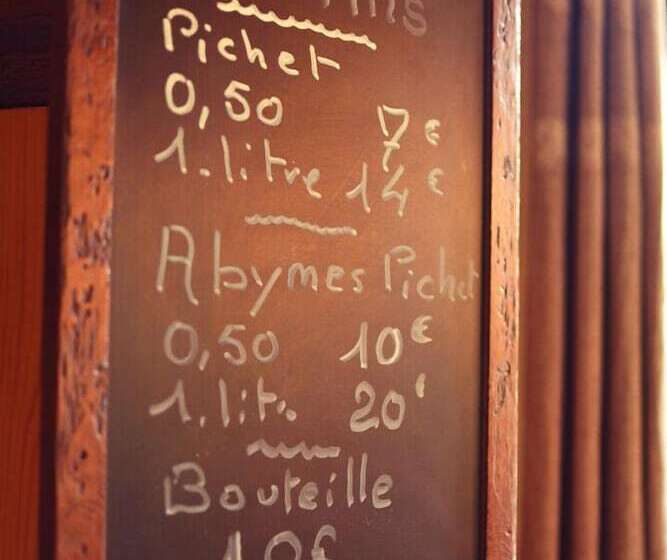 Pichet
0,50 7€
1.litre 14€
Abymes Pichet
0,50 10€
1.lit. 20€
Bouteille